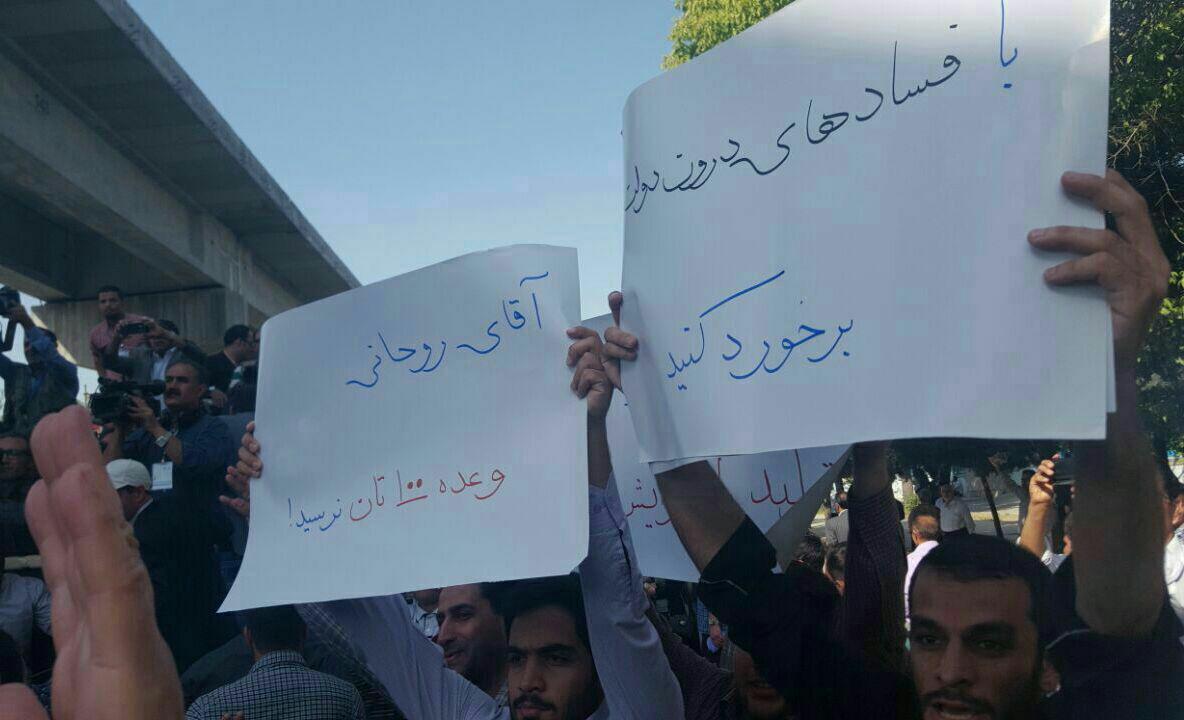 با فسادهای درون دولت
برخورد کنید
آقای روحانی
وعده ۱۰۰ تان نرسید!
تولید